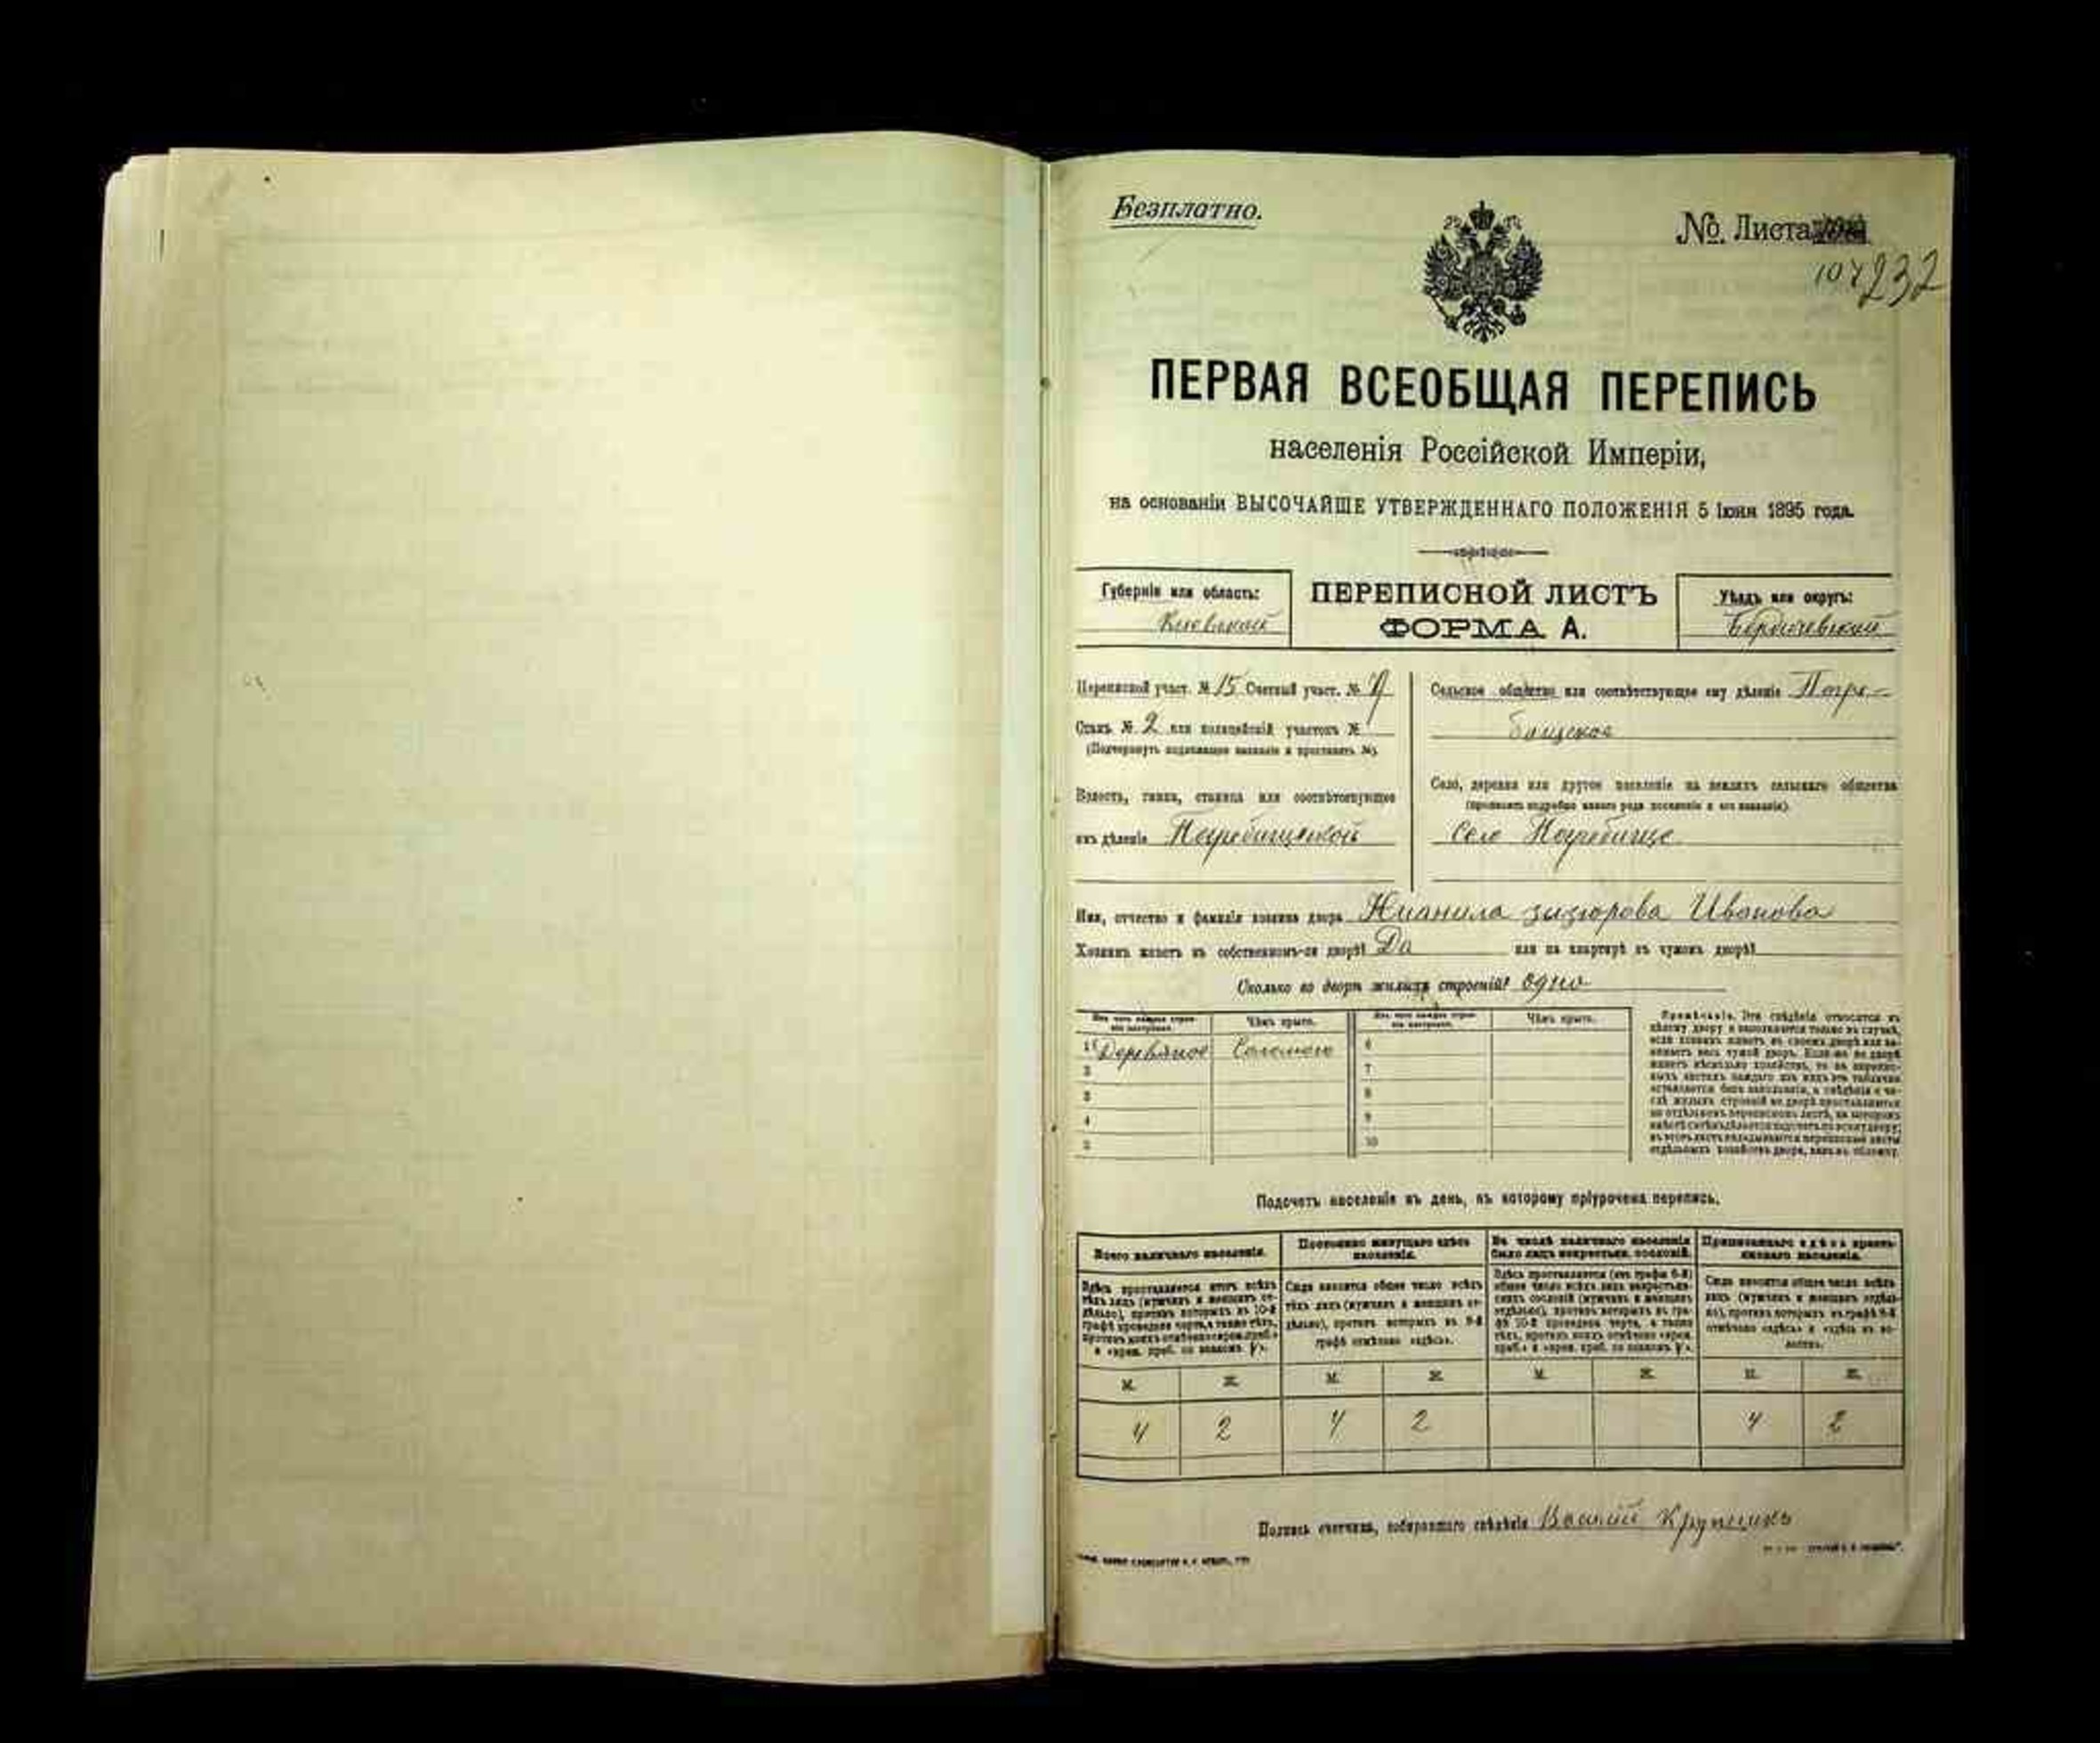 Безплатно.
№ Листа
107 232
ПЕРВАЯ ВСЕОБЩАЯ ПЕРЕПИСЬ
населенія Россійской Имперіи,
на основаніи ВЫСОЧАЙШЕ УТВЕРЖДЕННАГО ПОЛОЖЕНІЯ 5 Іюня 1895 года.
Губернія или область:
Киевской
ПЕРЕПИСНОЙ ЛИСТЪ
ФОРМА А.
Уѣздъ или округъ:
Бердичевский
Переписной участ. № 15 Счетный участ. №
Станъ № 2 или полицейскій участокъ №
(Подчеркнуть подлежащее названіе и проставить №).
Волость, гмина, станица или соотвѣтствующее
имъ дѣленіе Погребищенской
Сельское общество или соотвѣтствующее ему дѣленіе Погре-
бищское
Село, деревня или другое поселеніе на земляхъ сельскаго общества
(прописать подробно какого рода поселеніе и его названіе).
Село Погребище
Имя, отчество и фамилія хозяина двора Ивонова
Хозяинъ живетъ въ собственномъ-ли дворѣ? Да или на квартирѣ въ чужомъ дворѣ?
Сколько во дворѣ жилыхъ строеній? одно
Изъ чего каждое строе-
ніе построено.
Чѣмъ крыто.
Изъ чего каждое строе-
ніе построено.
Чѣмъ крыто.
1 Деревяное Соломою 6
2 7
3 8
4 9
5 10
Примѣчаніе. Эти свѣдѣнія относятся къ
цѣлому двору и заполняются только въ случаѣ,
если хозяинъ живетъ въ своемъ дворѣ или за-
нимаетъ весь чужой дворъ. Если же во дворѣ
живетъ нѣсколько хозяйствъ, то на перепис-
ныхъ листахъ каждаго изъ нихъ эта табличка
оставляется безъ заполненія, а свѣдѣнія о чи-
слѣ жилыхъ строеній во дворѣ проставляются
на отдѣльномъ переписномъ листѣ, на которомъ
въ этотъ листъ вкладываются переписные листы
отдѣльныхъ хозяйствъ двора, какъ въ обложку.
Подсчетъ населенія въ день, къ которому пріурочена перепись.
Всего наличнаго населенія.
Постоянно живущаго здѣсь
населенія.
Въ числѣ наличнаго населенія
было лицъ некрестьян. сословій.
Приписаннаго здѣсь кресть-
янскаго населенія.
Здѣсь проставляется итогъ всѣхъ
тѣхъ лицъ (мужчинъ и женщинъ от-
дѣльно), противъ которыхъ въ 10-й
графѣ проведена черта, а также тѣхъ,
противъ коихъ отмѣчено «врем. преб.»
Сюда вносится общее число всѣхъ
тѣхъ лицъ (мужчинъ и женщинъ от-
дѣльно), противъ которыхъ въ 9-й
графѣ отмѣчено «здѣсь».
Здѣсь проставляется (изъ графы 6-й)
общее число всѣхъ лицъ некрестьян-
скихъ сословій (мужчинъ и женщинъ
отдѣльно), противъ которыхъ въ гра-
фѣ 10-й проведена черта, а также
тѣхъ, противъ коихъ отмѣчено «врем.
Сюда вносится общее число всѣхъ
лицъ (мужчинъ и женщинъ отдѣль-
но), противъ которыхъ въ графѣ 8-й
отмѣчено «здѣсь» и «здѣсь въ во-
лости».
М. Ж. М. Ж. М. Ж. М. Ж.
4 2 4 2 4 2
Подпись счетчика, собиравшаго свѣдѣнія